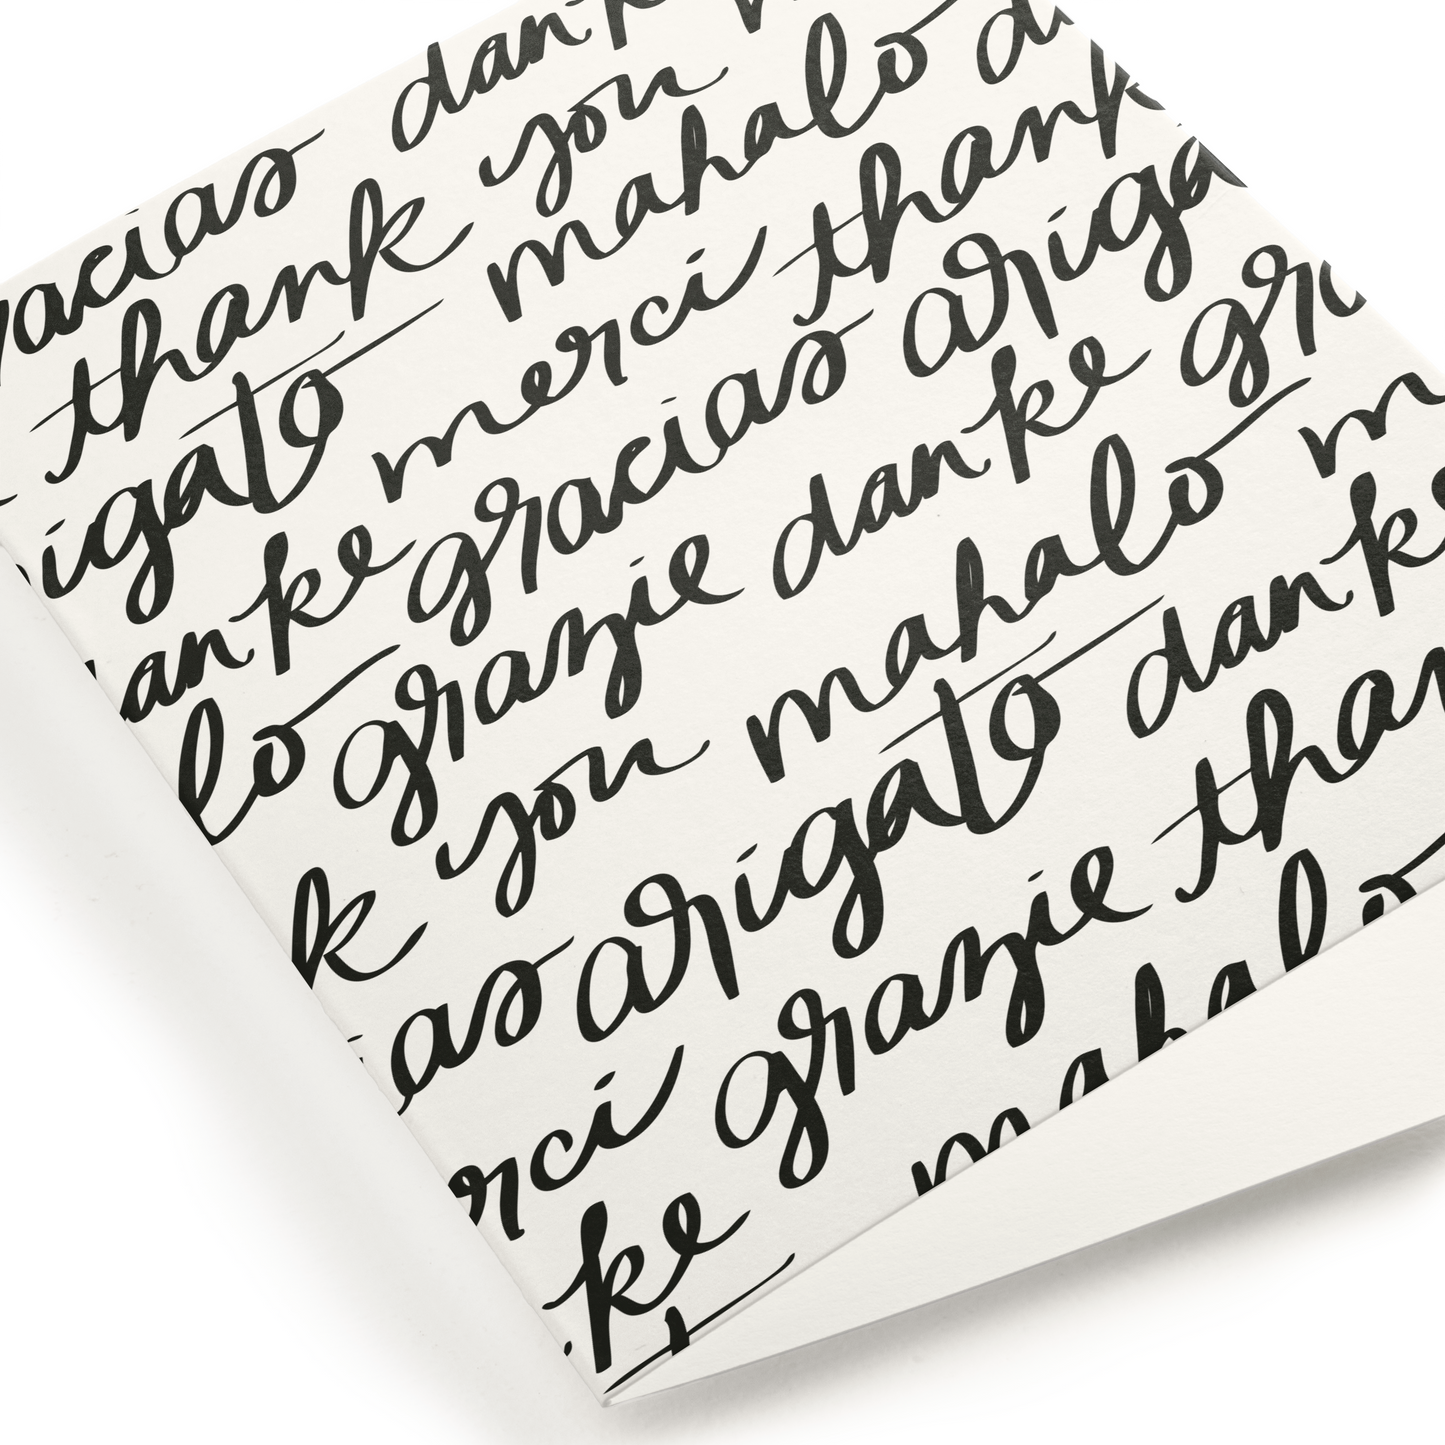 racias dank
thank you
igato mahalo d
anke merci thank
lo gracias ariga
grazie danke gra
k you mahalo m
ias arigato danke
rci grazie than
ke mahalo